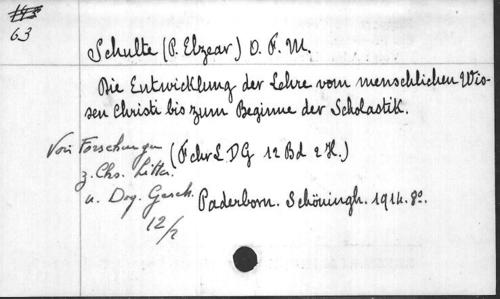 63
Schulte (P. Elzear) O. F. M.
Die Entwicklung der Lehre vom menschlichen Wis-
sen Christi bis zum Beginne der Scholastik.
Von Forschungen
(FchrLDG 12 Bd 2 H.)
z. Chr. Litter.
u. Dog. Gesch.
12/2
Paderborn. Schöningh. 1914. 8o.